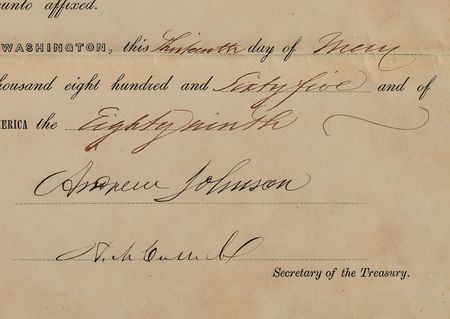 unto affixed.
WASHINGTON, this thirteenth day of May
thousand eight hundred and Sixty five and of
MERICA the Eighty ninth
Andrew Johnson
H. McCulloch
Secretary of the Treasury.